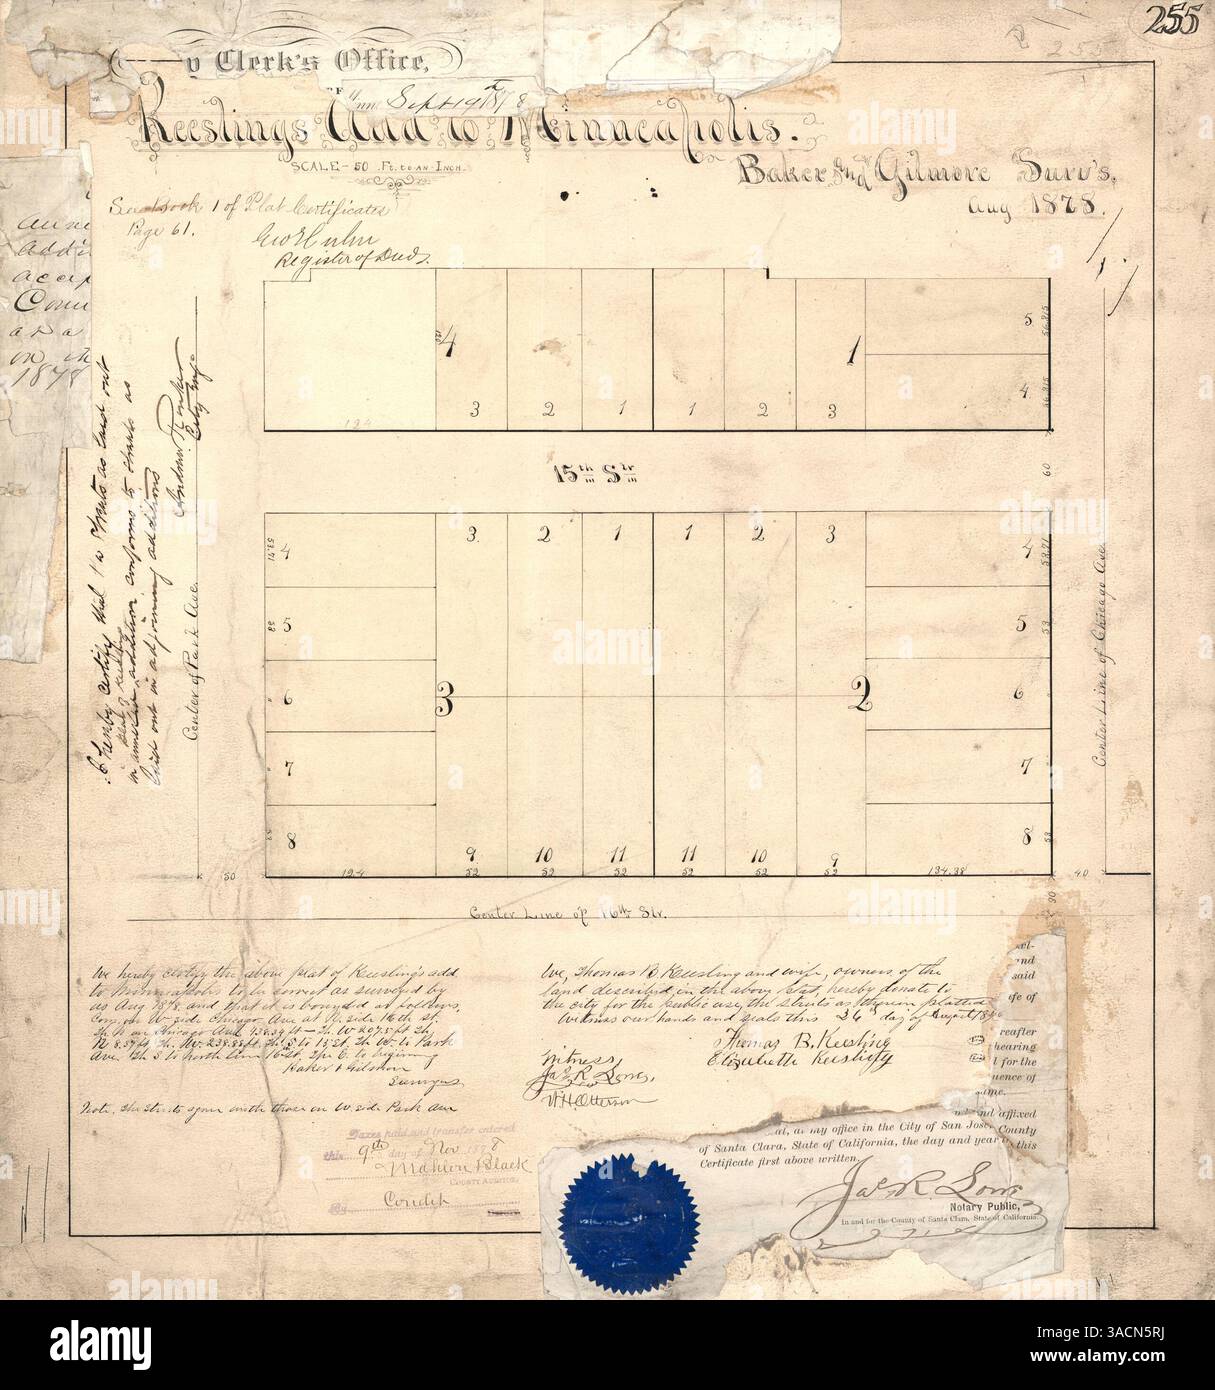 255
Clerk's Office,
Sept 19th 1878
Keeslings Add to Minneapolis.
SCALE - 50 Ft. to an Inch.
Baker and Gilmore Surv's,
Aug 1878.
See Book 1 of Plat Certificates
Page 61.
Register of Deeds
1878
I hereby certify that the streets as laid out
plat of Keeslings
in annexed addition conforms to streets as
laid out in adjoining additions
Andrew Rinker
City Eng.
Center of Park Ave.
Center Line of Chicago Ave.
4 1 5
4
3 2 1 1 2 3
124
56.815
56.815
15th Str
60
3 2 1 1 2 3
4 4
53.71 53.71
5 5
53 53
6 6
3 2
7 7
8 8
53 53
9 10 11 11 10 9
50 124 52 52 52 52 52 52 134.38 40
30
Center Line of 16th Str.
We hereby certify the above plat of Keesling's add.
to Minneapolis to be correct as surveyed by
us Aug 1878 and that it is bounded as follows,
Com. on W. side Chicago Ave at N. side 16th st.
Th. N. on Chicago Ave 438.34 ft - Th. W 207.5 ft Th.
N 8.57 ft, Th. W. 238.88 ft Th. S to 15 St. Th W. to Park
Ave. Th S to north line 16 St. Th E. to beginning
Baker & Gilmore
Surveyors
Note, The Streets agree with those on W. side Park Ave
We, Thomas B. Keesling and wife, owners of the
land described in the above plat, hereby donate to
the city for the public use, the streets as therein platted
Witness our hands and seals this 24th day of August 1878
Thomas B. Keesling
Elizabeth Keesling
Witness
Jas R Lowe,
W H Otterson
Taxes paid and transfer entered
this 9th day of Nov 1878
Mahlon Black
COUNTY AUDITOR
By Condit
Deputy
and
said
ife of
reafter
hearing
l for the
uence of
ame.
and affixed
at, at my office in the City of San Jose, County
of Santa Clara, State of California, the day and year in this
Certificate first above written.
Jas R Lowe
Notary Public,
In and for the County of Santa Clara, State of California.
alamy
Image ID: 3ACN5RJ
www.alamy.com